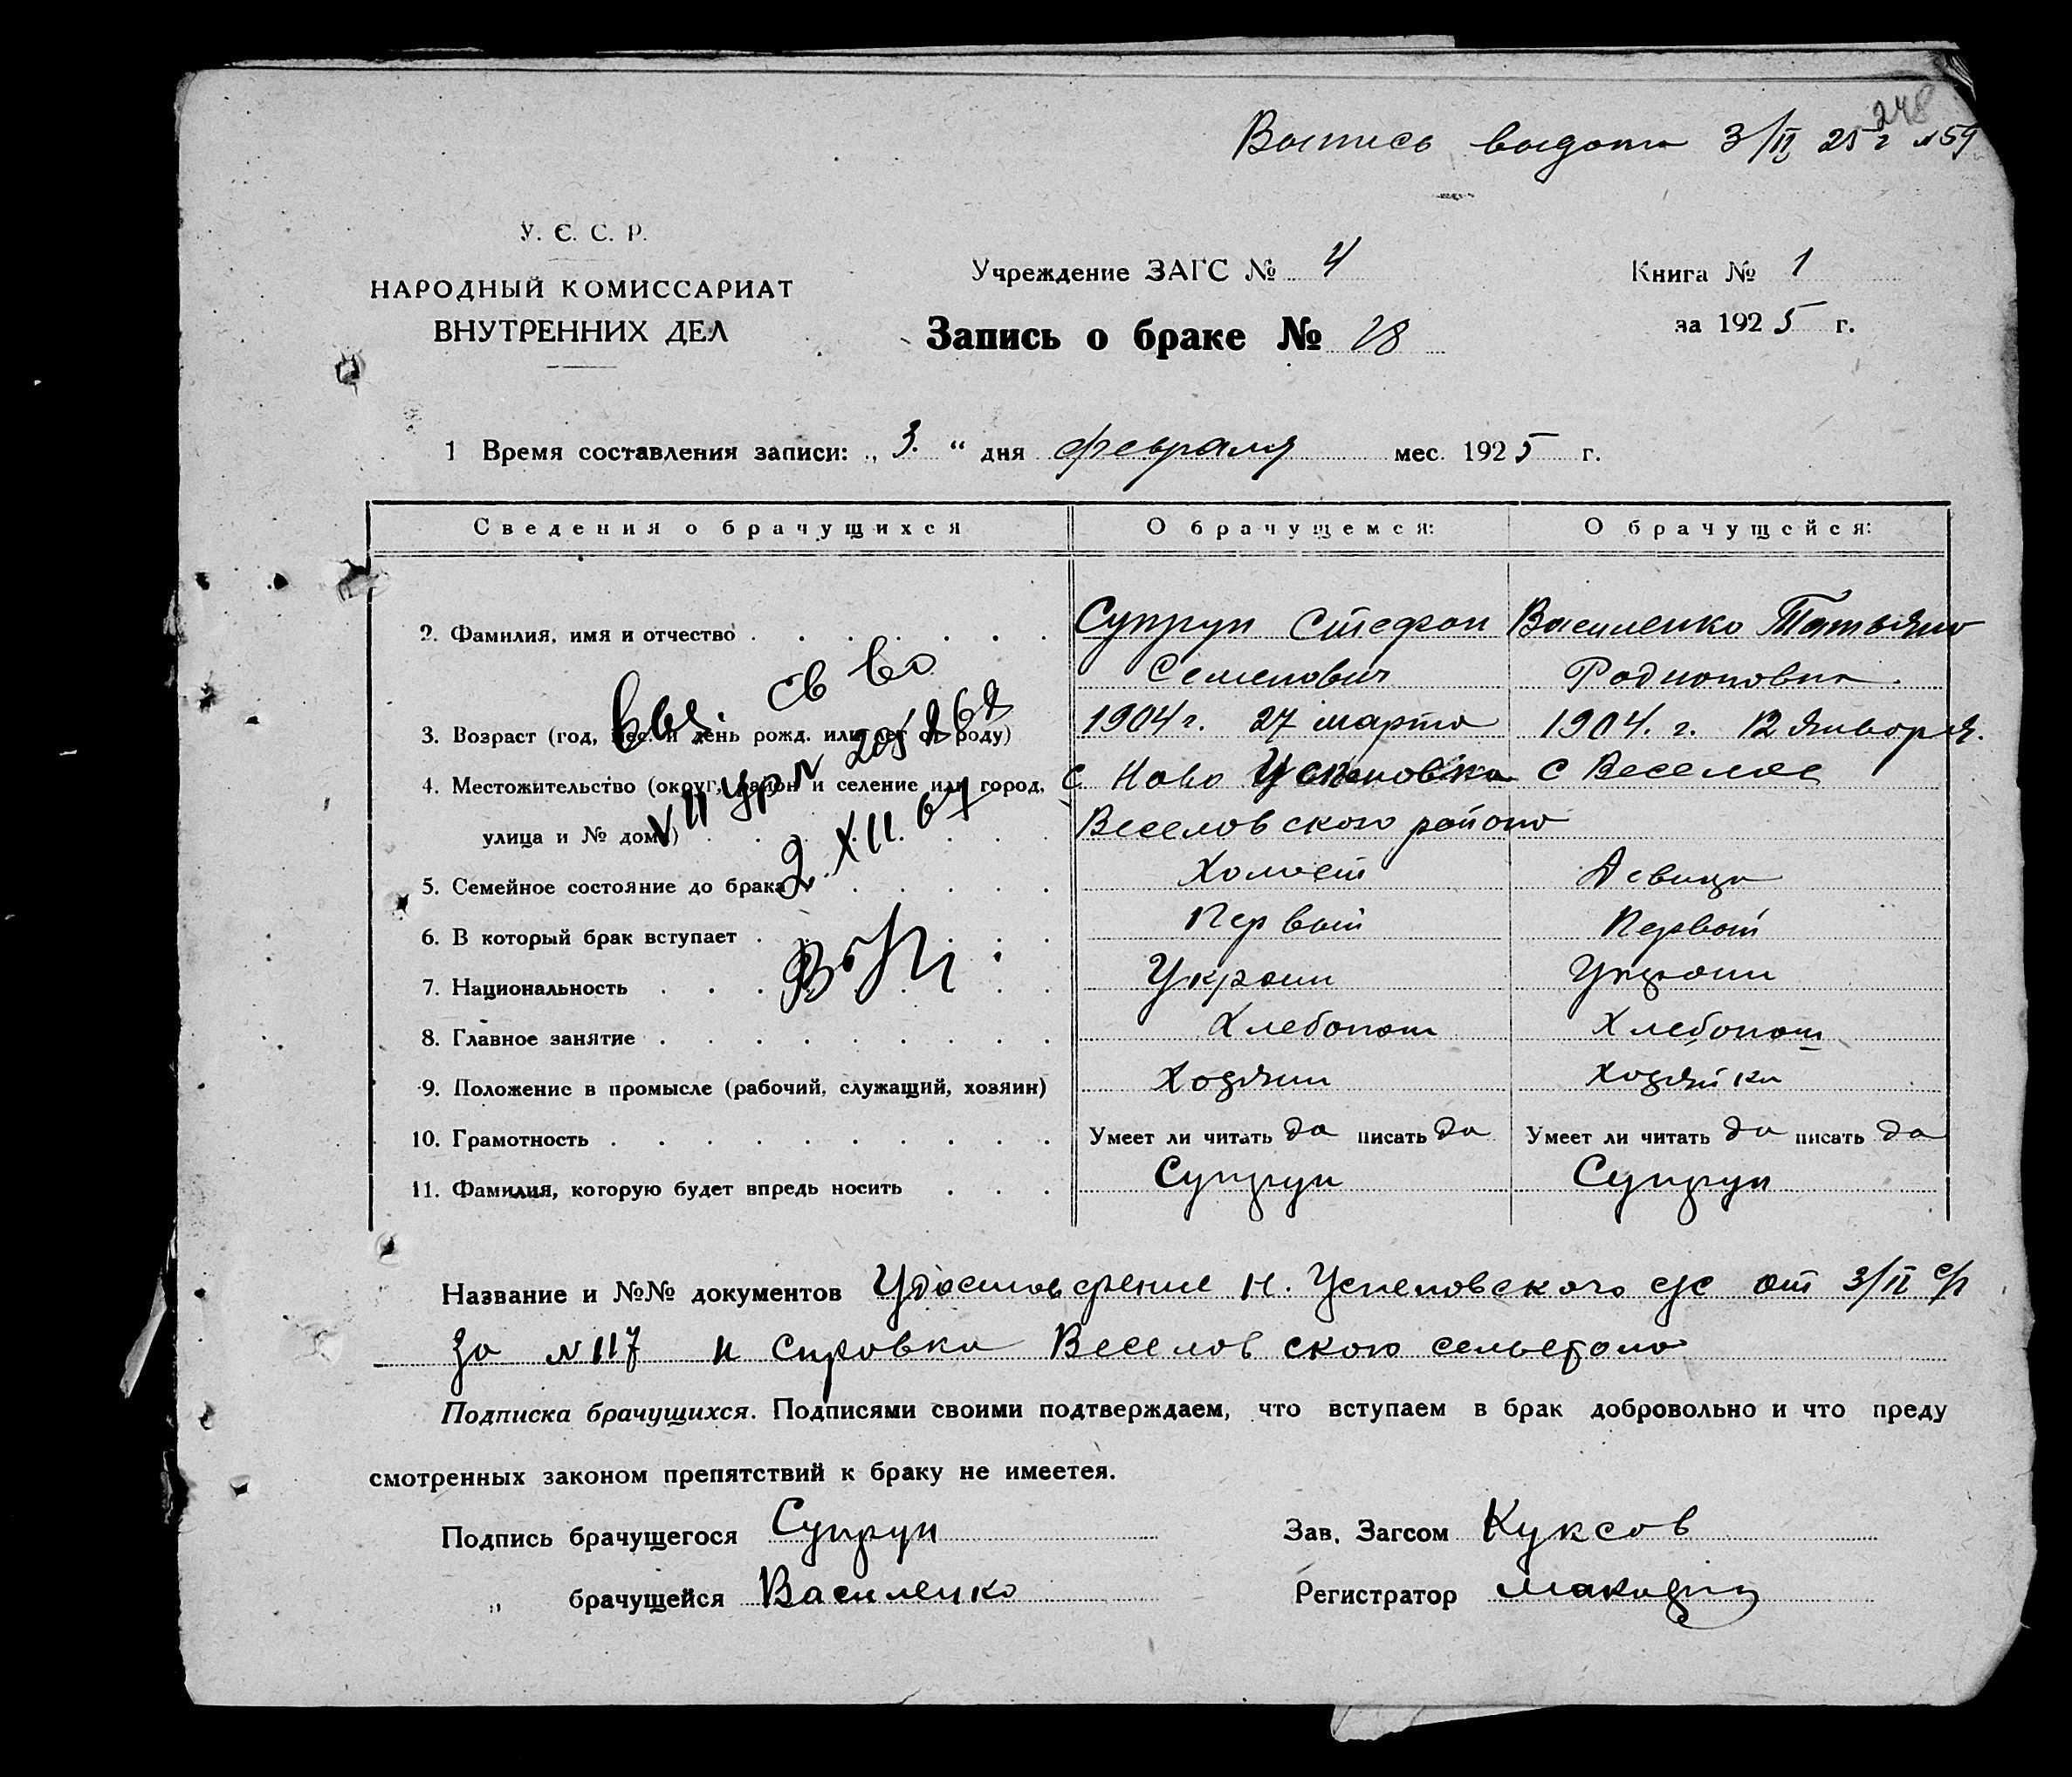 248
Выпись выдана 3/II 25 г №59
У. С. С. Р.
НАРОДНЫЙ КОМИССАРИАТ
ВНУТРЕННИХ ДЕЛ
Учреждение ЗАГС № 4
Запись о браке № 28
Книга № 1
за 1925 г.
1 Время составления записи: „ 3. “ дня февраля мес. 1925 г.
Сведения о брачущихся О брачущемся: О брачущейся:
2. Фамилия, имя и отчество Супрун Стефан Василенко Татьяна
Семенович Родионовна.
3. Возраст (год, мес. и день рожд. или лет от роду) 1904 г. 27 марта 1904. г. 12 января.
4. Местожительство (округ, район и селение или город, с Ново Успеновка с Веселое
улица и № дома) Веселовского района
5. Семейное состояние до брака Холост Девица
6. В который брак вступает Первый Первый
7. Национальность Украин Украин
8. Главное занятие Хлебопаш Хлебопаш
9. Положение в промысле (рабочий, служащий, хозяин) Хозяин Хозяйка
10. Грамотность Умеет ли читать да писать да Умеет ли читать да писать да
11. Фамилия, которую будет впредь носить Супрун Супрун
св во
2. XII. 67
Название и №№ документов Удостоверение Н. Успеновского с/с от 3/II с/г
за №117 и справка Веселовского
Подписка брачущихся. Подписями своими подтверждаем, что вступаем в брак добровольно и что преду
смотренных законом препятствий к браку не имеетея.
Подпись брачущегося Супрун Зав. Загсом Куксов
„ брачущейся Василенко Регистратор